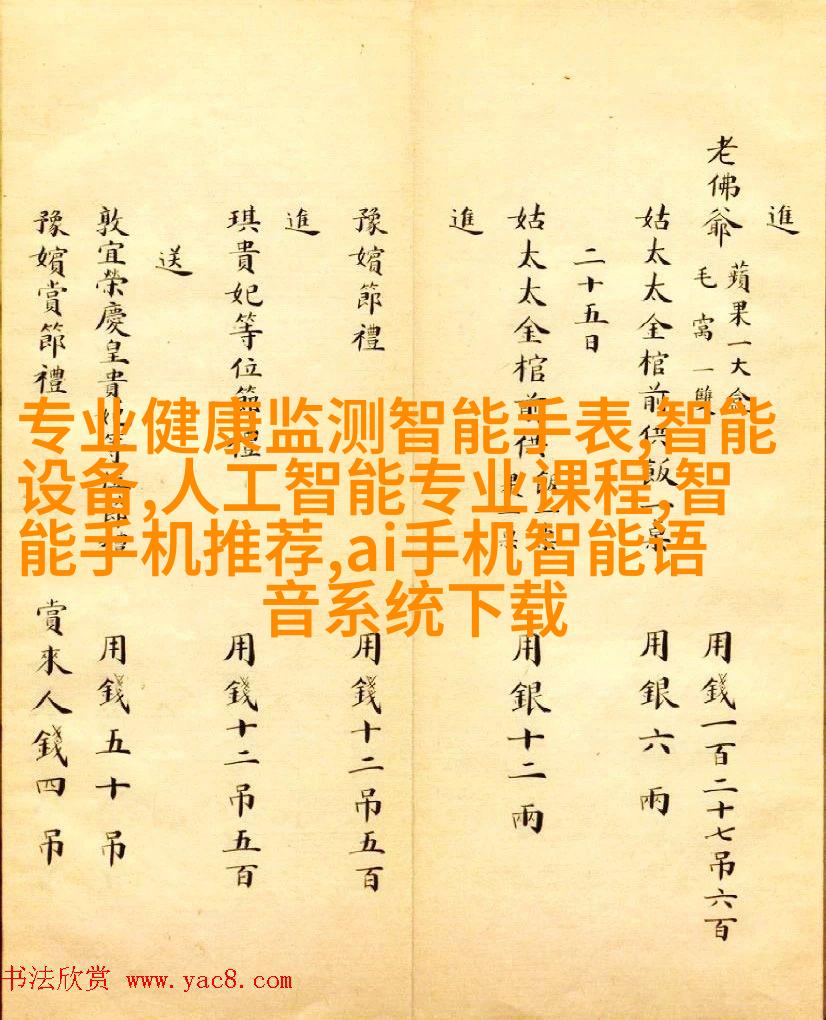 進
老佛爺 蘋果一大盒 毛窩一雙 用錢一百二十七吊六百
姑太太金棺前供飯一桌 用銀六兩
二十五日
姑太太金棺前供 用銀十二兩
進
豫嬪節禮 用錢十二吊五百
進
琪貴妃等位節禮 用錢十二吊五百
送
敦宜榮慶皇貴妃等位節禮 用錢五十吊
豫嬪賞節禮 賞來人錢四吊
专业健康监测智能手表,智能
设备,人工智能专业课程,智
能手机推荐,ai手机智能语
音系统下载
书法欣赏 www.yac8.com